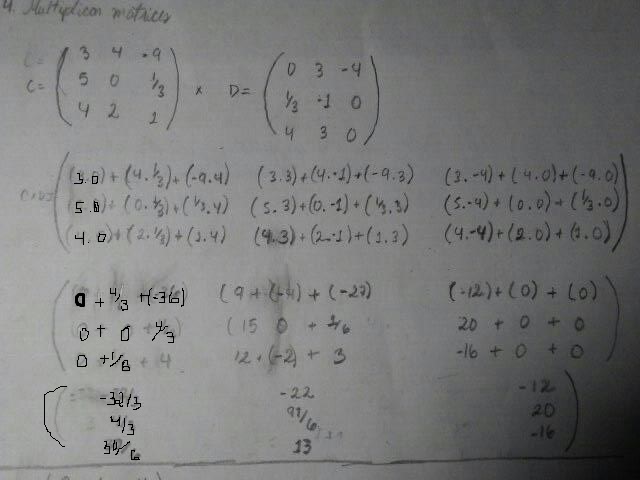 4. Multiplicar matrices
3 4 -9
C= 5 0 1/3 x D=
4 2 1
0 3 -4
1/3 -1 0
4 3 0
(3.0)+(4.1/3)+(-9.4) (3.3)+(4.-1)+(-9.3) (3.-4)+(4.0)+(-9.0)
(5.0)+(0.1/3)+(1/3.4) (5.3)+(0.-1)+(1/3.3) (5.-4)+(0.0)+(1/3.0)
(4.0)+(2.1/3)+(1.4) (4.3)+(2.-1)+(1.3) (4.-4)+(2.0)+(1.0)
0 + 4/3 +(-36) (9+(-4)+(-27) (-12)+(0)+(0)
0 + 0 4/3 (15 0 + 20 + 0 + 0
0 + + 4 12+(-2)+3 -16 + 0 + 0
-32/3 -22 -12
4/3 20
13 -16